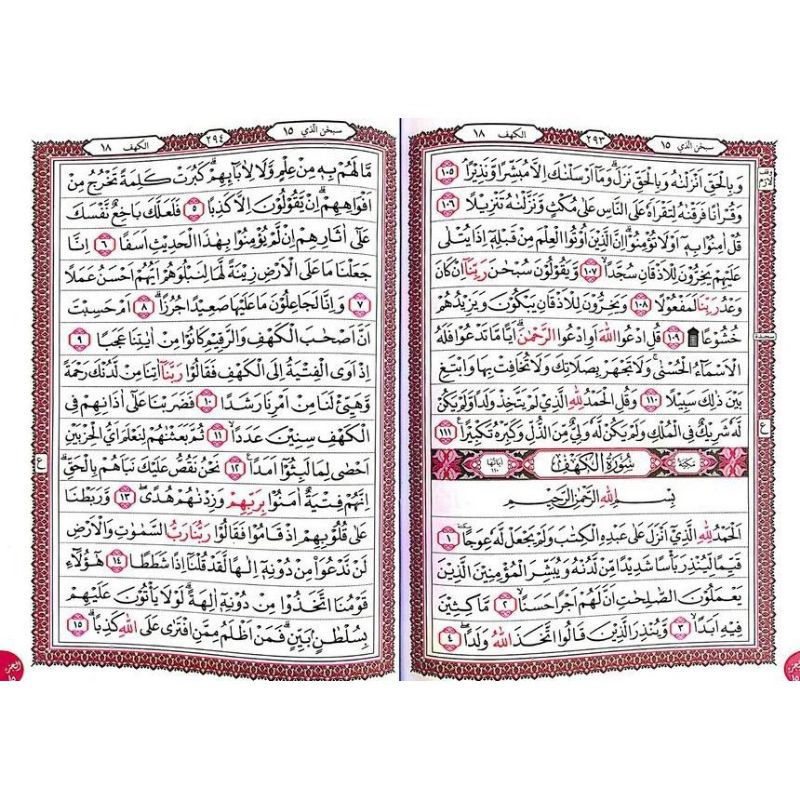 سبحن الذي ١٥
٢٩٣
الكهف ١٨
وقف لازم
وَبِالْحَقِّ اَنْزَلْنٰهُ وَبِالْحَقِّ نَزَلَۗ وَمَآ اَرْسَلْنٰكَ اِلَّا مُبَشِّرًا وَّنَذِيْرًاۘ ١٠٥
وَقُرْاٰنًا فَرَقْنٰهُ لِتَقْرَاَهٗ عَلَى النَّاسِ عَلٰى مُكْثٍ وَّنَزَّلْنٰهُ تَنْزِيْلًا ١٠٦
قُلْ اٰمِنُوْا بِهٖٓ اَوْ لَا تُؤْمِنُوْاۗ اِنَّ الَّذِيْنَ اُوْتُوا الْعِلْمَ مِنْ قَبْلِهٖٓ اِذَا يُتْلٰى
عَلَيْهِمْ يَخِرُّوْنَ لِلْاَذْقَانِ سُجَّدًاۙ ١٠٧ وَّيَقُوْلُوْنَ سُبْحٰنَ رَبِّنَآ اِنْ كَانَ
وَعْدُ رَبِّنَا لَمَفْعُوْلًا ١٠٨ وَيَخِرُّوْنَ لِلْاَذْقَانِ يَبْكُوْنَ وَيَزِيْدُهُمْ
خُشُوْعًا ١٠٩ قُلِ ادْعُوا اللّٰهَ اَوِ ادْعُوا الرَّحْمٰنَۗ اَيًّا مَّا تَدْعُوْا فَلَهُ
سجدة
الْاَسْمَاۤءُ الْحُسْنٰىۚ وَلَا تَجْهَرْ بِصَلَاتِكَ وَلَا تُخَافِتْ بِهَا وَابْتَغِ
بَيْنَ ذٰلِكَ سَبِيْلًا ١١٠ وَقُلِ الْحَمْدُ لِلّٰهِ الَّذِيْ لَمْ يَتَّخِذْ وَلَدًا وَّلَمْ يَكُنْ
لَّهٗ شَرِيْكٌ فِى الْمُلْكِ وَلَمْ يَكُنْ لَّهٗ وَلِيٌّ مِّنَ الذُّلِّ وَكَبِّرْهُ تَكْبِيْرًا ١١١
ع
مكية
سُوْرَةُ الْكَهْفِ
اياتها ١١٠
بِسْمِ اللّٰهِ الرَّحْمٰنِ الرَّحِيْمِ
اَلْحَمْدُ لِلّٰهِ الَّذِيْٓ اَنْزَلَ عَلٰى عَبْدِهِ الْكِتٰبَ وَلَمْ يَجْعَلْ لَّهٗ عِوَجًا ١
قَيِّمًا لِّيُنْذِرَ بَأْسًا شَدِيْدًا مِّنْ لَّدُنْهُ وَيُبَشِّرَ الْمُؤْمِنِيْنَ الَّذِيْنَ
يَعْمَلُوْنَ الصّٰلِحٰتِ اَنَّ لَهُمْ اَجْرًا حَسَنًاۙ ٢ مَّاكِثِيْنَ
فِيْهِ اَبَدًاۙ ٣ وَّيُنْذِرَ الَّذِيْنَ قَالُوا اتَّخَذَ اللّٰهُ وَلَدًا ٤
سبحن الذي ١٥
٢٩٤
الكهف ١٨
مَّا لَهُمْ بِهٖ مِنْ عِلْمٍ وَّلَا لِاٰبَاۤىِٕهِمْۗ كَبُرَتْ كَلِمَةً تَخْرُجُ مِنْ
اَفْوَاهِهِمْۗ اِنْ يَّقُوْلُوْنَ اِلَّا كَذِبًا ٥ فَلَعَلَّكَ بَاخِعٌ نَّفْسَكَ
عَلٰٓى اٰثَارِهِمْ اِنْ لَّمْ يُؤْمِنُوْا بِهٰذَا الْحَدِيْثِ اَسَفًا ٦ اِنَّا
جَعَلْنَا مَا عَلَى الْاَرْضِ زِيْنَةً لَّهَا لِنَبْلُوَهُمْ اَيُّهُمْ اَحْسَنُ عَمَلًا
٧ وَاِنَّا لَجَاعِلُوْنَ مَا عَلَيْهَا صَعِيْدًا جُرُزًاۗ ٨ اَمْ حَسِبْتَ
اَنَّ اَصْحٰبَ الْكَهْفِ وَالرَّقِيْمِ كَانُوْا مِنْ اٰيٰتِنَا عَجَبًا ٩
اِذْ اَوَى الْفِتْيَةُ اِلَى الْكَهْفِ فَقَالُوْا رَبَّنَآ اٰتِنَا مِنْ لَّدُنْكَ رَحْمَةً
وَّهَيِّئْ لَنَا مِنْ اَمْرِنَا رَشَدًا ١٠ فَضَرَبْنَا عَلٰٓى اٰذَانِهِمْ فِى
الْكَهْفِ سِنِيْنَ عَدَدًاۙ ١١ ثُمَّ بَعَثْنٰهُمْ لِنَعْلَمَ اَيُّ الْحِزْبَيْنِ
اَحْصٰى لِمَا لَبِثُوْٓا اَمَدًا ١٢ نَحْنُ نَقُصُّ عَلَيْكَ نَبَاَهُمْ بِالْحَقِّۗ
ع
اِنَّهُمْ فِتْيَةٌ اٰمَنُوْا بِرَبِّهِمْ وَزِدْنٰهُمْ هُدًىۖ ١٣ وَّرَبَطْنَا
عَلٰى قُلُوْبِهِمْ اِذْ قَامُوْا فَقَالُوْا رَبُّنَا رَبُّ السَّمٰوٰتِ وَالْاَرْضِ
لَنْ نَّدْعُوَا۟ مِنْ دُوْنِهٖٓ اِلٰهًا لَّقَدْ قُلْنَآ اِذًا شَطَطًا ١٤ هٰٓؤُلَاۤءِ
قَوْمُنَا اتَّخَذُوْا مِنْ دُوْنِهٖٓ اٰلِهَةًۗ لَوْلَا يَأْتُوْنَ عَلَيْهِمْ
بِسُلْطٰنٍۢ بَيِّنٍۗ فَمَنْ اَظْلَمُ مِمَّنِ افْتَرٰى عَلَى اللّٰهِ كَذِبًاۗ ١٥